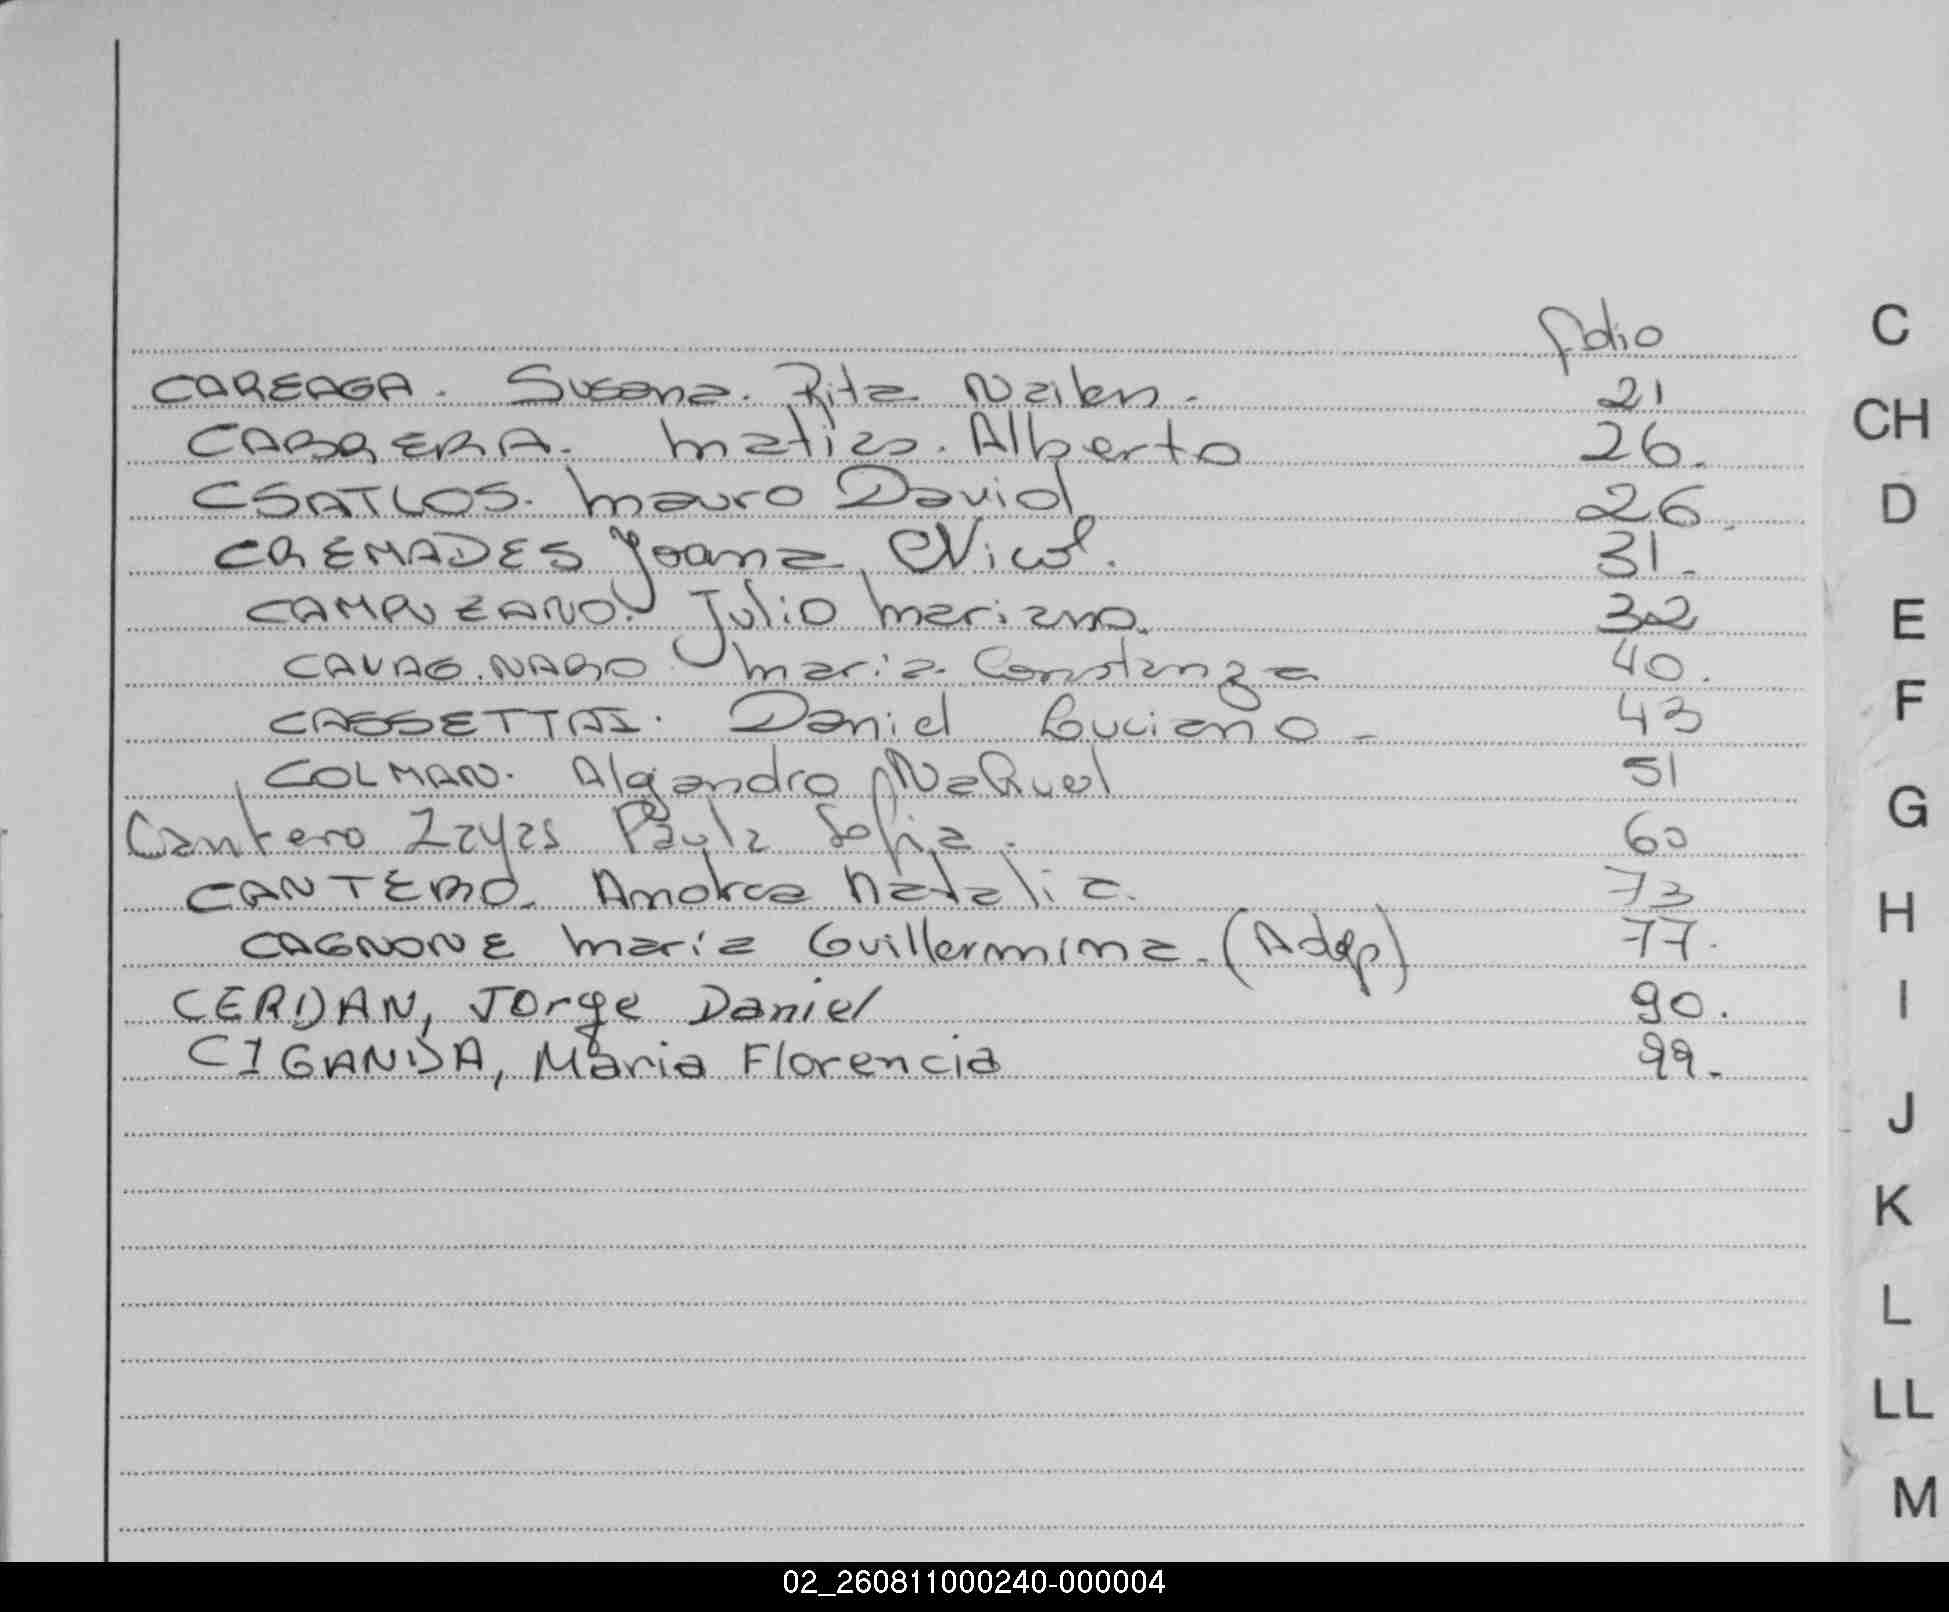 folio
CAREAGA. Susana. Rita Nailen. 21
CABRERA. Matias. Alberto 26.
CSATLOS. Mauro David 26.
CREMADES Yoana Nicol. 31.
Julio Mariano. 32
CAVAG.NARO Maria Constanza 40.
Daniel Luciano - 43
COLMAN. Alejandro Nahuel 51
Cantero Zayas Paula Sofia. 60
CANTERO. Andrea Natalia. 73
CAGNONE Maria Guillermina. (Adop) 77.
CERDAN, Jorge Daniel 90.
CIGANDA, Maria Florencia 99.
C
CH
D
E
F
G
H
I
J
K
L
LL
M
02_260811000240-000004